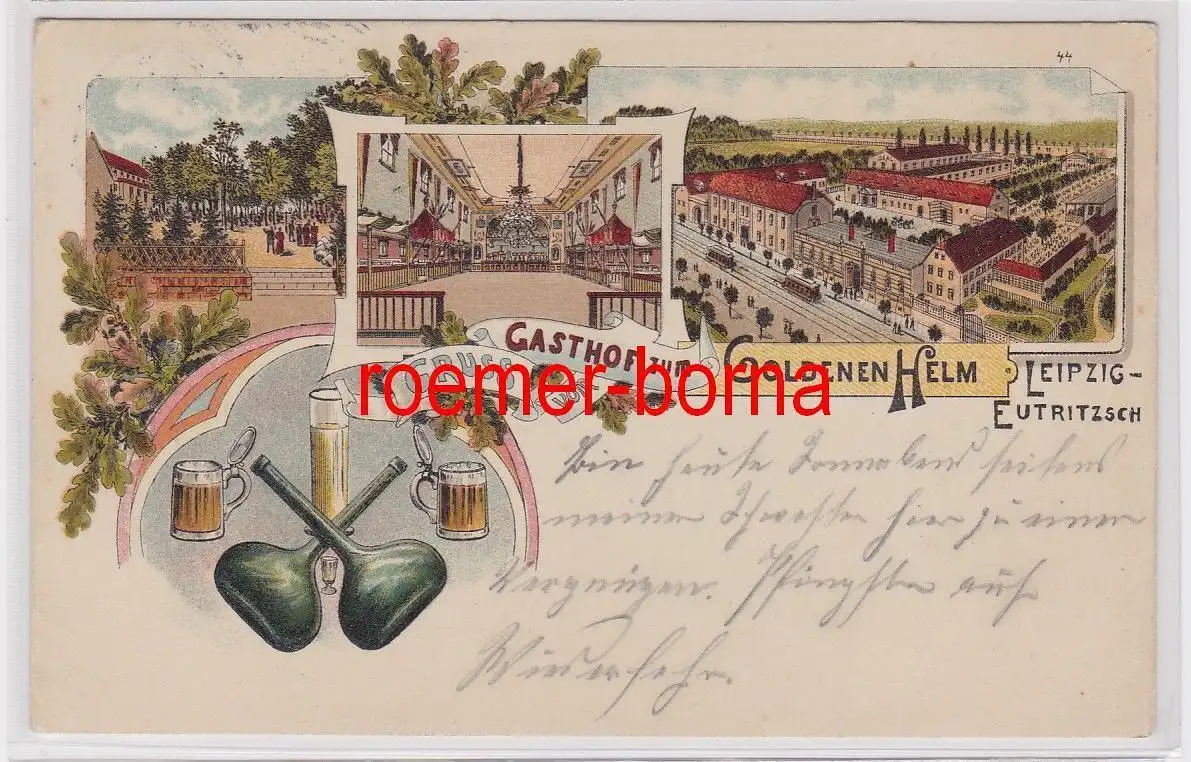 44
GRUSS
VOM
GASTHOF ZUM
GOLDENEN HELM
LEIPZIG-
EUTRITZSCH
roemer-borna
Bin heute Sonnabend seitens
meiner Schwester hier zu einem
Vergnügen. Pfingsten auf
Wiedersehn.